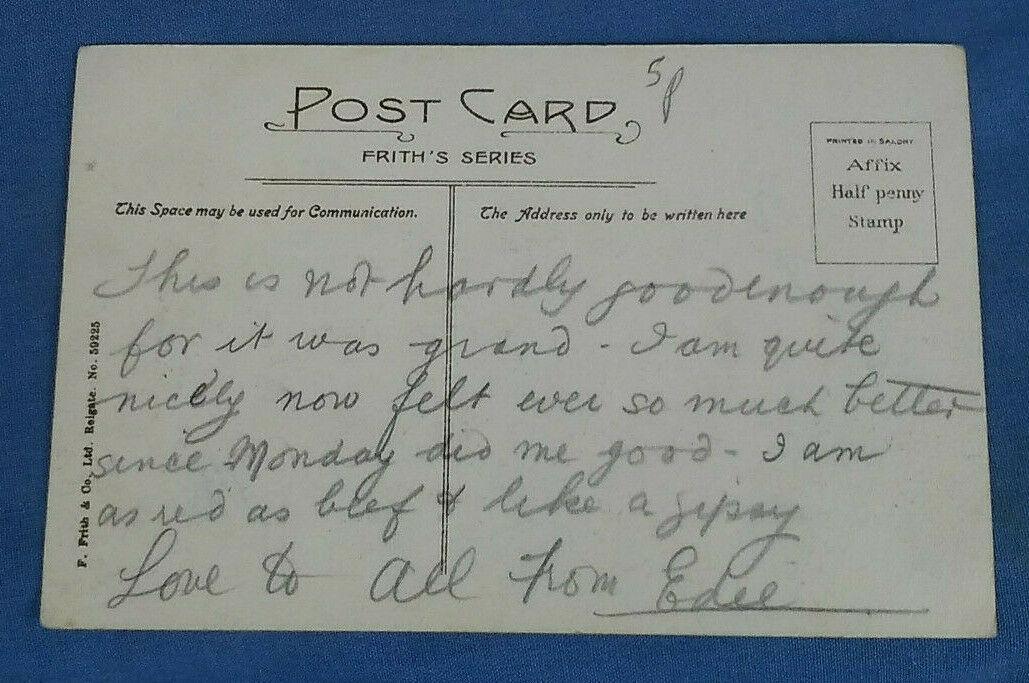 5p
POST CARD
FRITH'S SERIES
PRINTED IN SAXONY
Affix
Half penny
Stamp
This Space may be used for Communication.
The Address only to be written here
This is not hardly good enough
for it was grand - I am quite
nicely now felt ever so much better
since Monday did me good - I am
as red as beef & like a gipsy
Love to All From Edie
F. Frith & Co., Ltd. Reigate. No. 59225